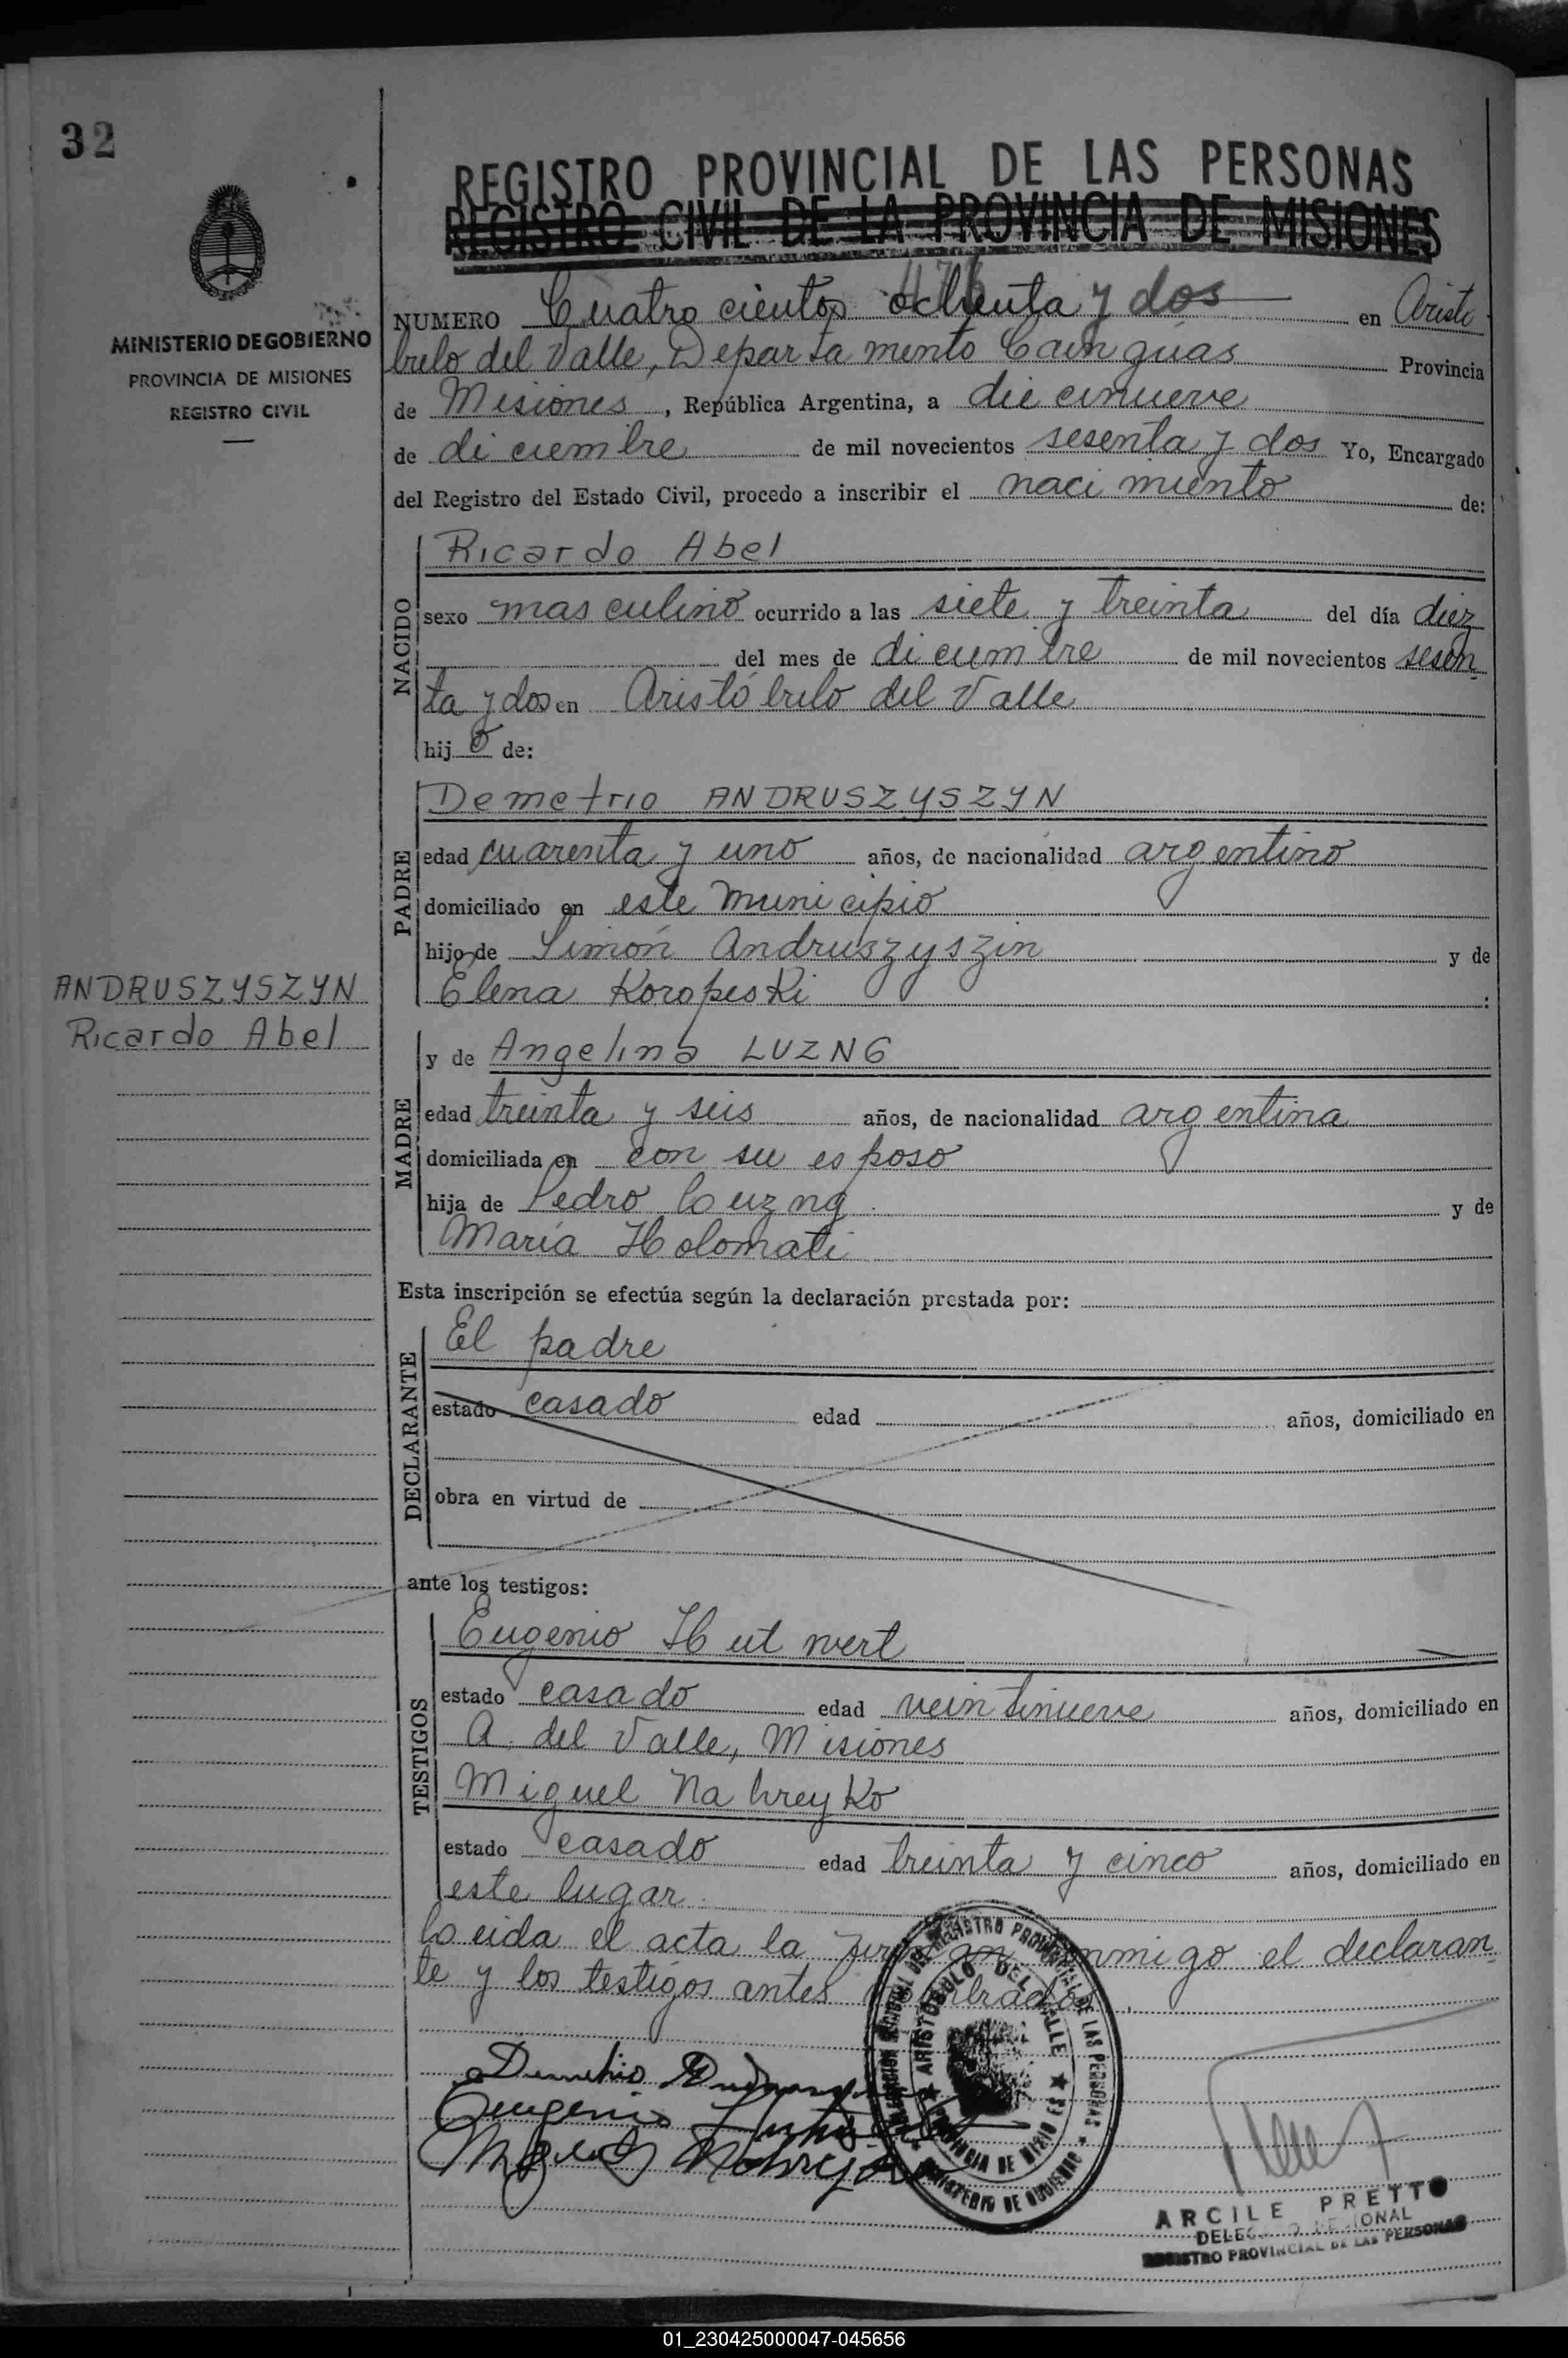 32
REGISTRO PROVINCIAL DE LAS PERSONAS
REGISTRO CIVIL DE LA PROVINCIA DE MISIONES
MINISTERIO DE GOBIERNO
PROVINCIA DE MISIONES
REGISTRO CIVIL
NUMERO Cuatro cientos ochenta y dos en Aristó
bulo del Valle, Departamento Cainguás Provincia
de Misiones, República Argentina, a diecinueve
de diciembre de mil novecientos sesenta y dos Yo, Encargado
del Registro del Estado Civil, procedo a inscribir el nacimiento de:
NACIDO
Ricardo Abel
sexo masculino ocurrido a las siete y treinta del día diez
del mes de diciembre de mil novecientos sesen
ta y dos en Aristóbulo del Valle
hijo de:
PADRE
Demetrio ANDRUSZYSZYN
edad cuarenta y uno años, de nacionalidad argentino
domiciliado en este municipio
hijo de Simón Andruszyszin y de
Elena Koropeski :
ANDRUSZYSZYN
Ricardo Abel
MADRE
y de Angelina LUZNG
edad treinta y seis años, de nacionalidad argentina
domiciliada en con su esposo
hija de Pedro Luzng y de
María Holomati
Esta inscripción se efectúa según la declaración prestada por:
DECLARANTE
El padre
estado casado edad años, domiciliado en
obra en virtud de
ante los testigos:
TESTIGOS
Eugenio Hutnert
estado casado edad veintinueve años, domiciliado en
A. del Valle, Misiones
Miguel Nahreyko
estado casado edad treinta y cinco años, domiciliado en
este lugar.
Leida el acta la conmigo el declaran
te y los testigos antes nombrados.
REGISTRO PROVINCIAL DE LAS PERSONAS
ARISTOBULO DEL VALLE
PROVINCIA DE MISIONES
MINISTERIO DE GOBIERNO
Demetrio
Eugenio
ARCILE PRETTO
REGISTRO PROVINCIAL DE LAS PERSONAS
01_230425000047-045656